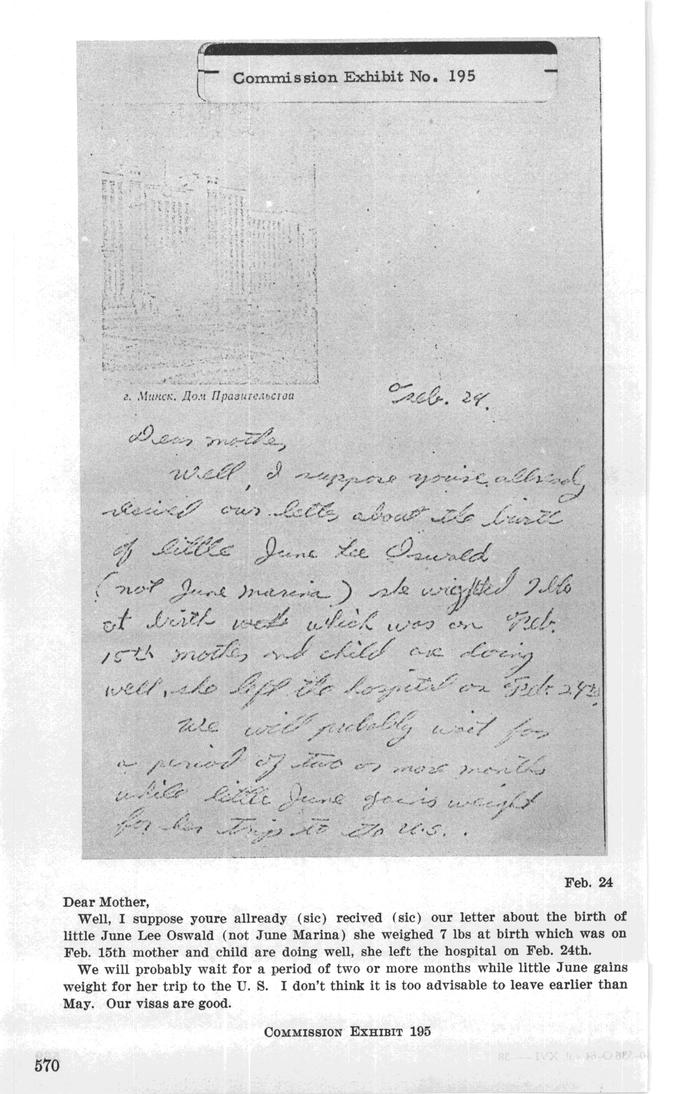 Commission Exhibit No. 195
г. Минск. Дом Правительства
Feb. 24.
Dear mother,
Well, I suppose youre allready
recived our letter about the birth
of little June Lee Oswald
(not June Marina) she wighted 7 lbs
at birth which was on Feb.
15th mother and child are doing
well, she left the hospital on Feb. 24th.
We will probably wait for
a period of two or more months
while little June gains weight
for her trip to the U.S..
Feb. 24
Dear Mother,
Well, I suppose youre allready (sic) recived (sic) our letter about the birth of
little June Lee Oswald (not June Marina) she weighed 7 lbs at birth which was on
Feb. 15th mother and child are doing well, she left the hospital on Feb. 24th.
We will probably wait for a period of two or more months while little June gains
weight for her trip to the U. S. I don't think it is too advisable to leave earlier than
May. Our visas are good.
COMMISSION EXHIBIT 195
570